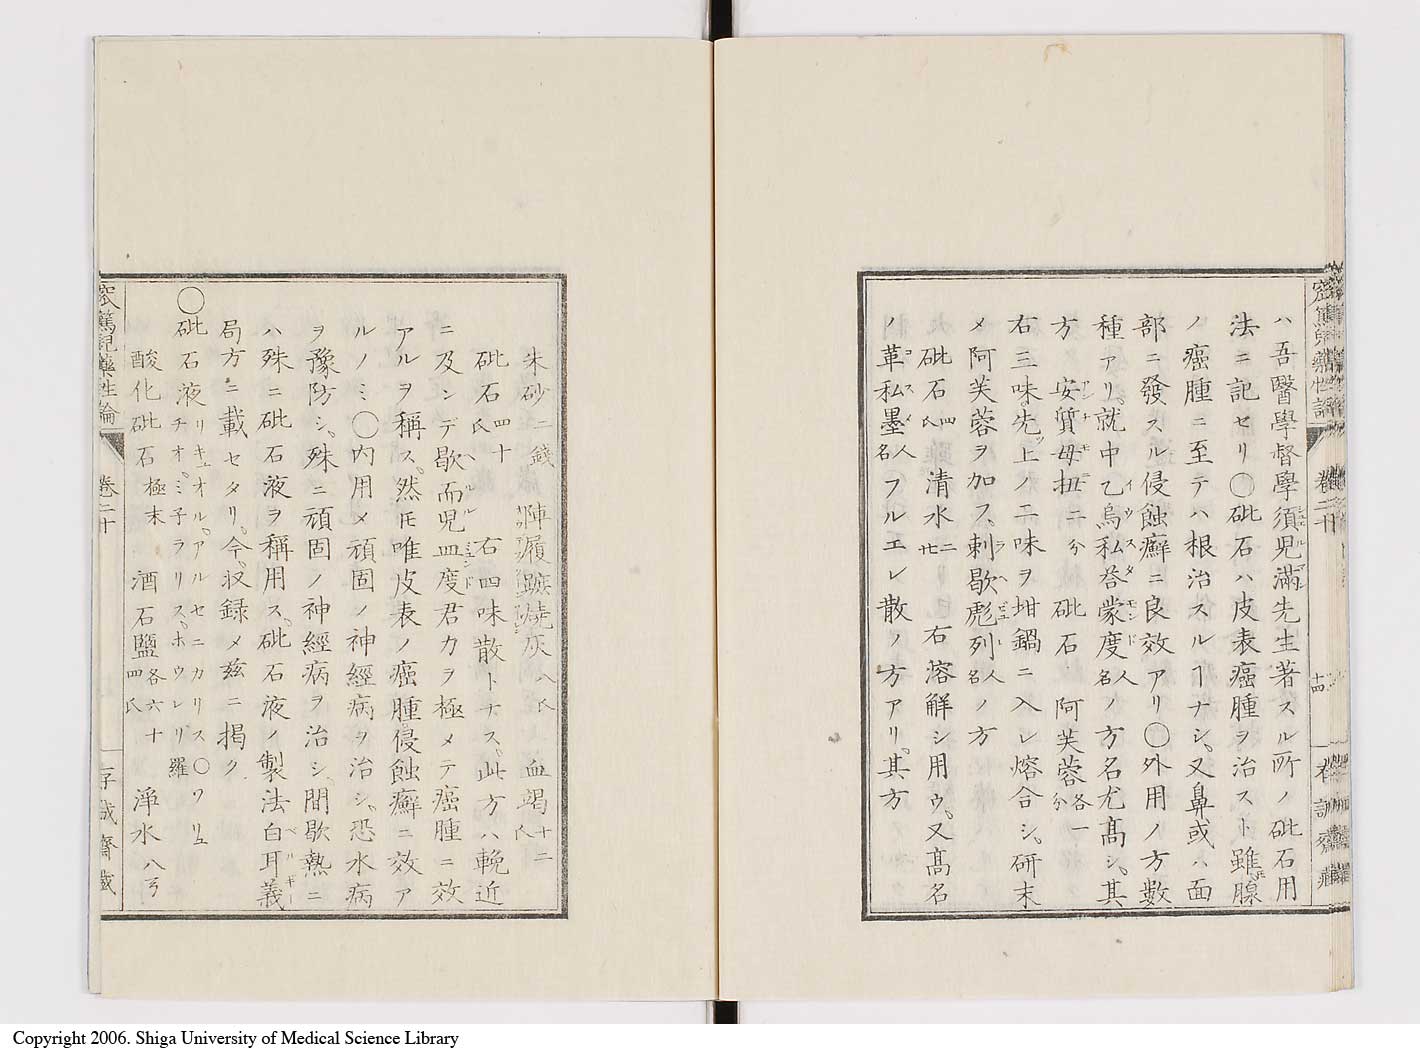 ハ吾醫學督學須児滿先生著スル所ノ砒石用
法ニ記セリ〇砒石ハ皮表癌腫ヲ治スト雖𪜈腺
ノ癌腫ニ至テハ根治スルヿナシ、又鼻或ハ面
部ニ發スル侵蝕癬ニ良效アリ〇外用ノ方數
種アリ、就中乙烏私荅蒙度人名ノ方名尤髙シ、其
方 安質母扭ニ分 砒石 阿芙蓉各一分
右三味、先ッ上ノ二味ヲ坩鍋ニ入レ熔合シ、研末
メ阿芙蓉ヲ加フ、刺歇彪列人名ノ方
砒石四氏 清水二廿 右溶解シ用ウ、又髙名
ノ革私墨人名フルエレ散ノ方アリ、其方
朱砂二錢 陣履蹠燒灰八氏 血竭十二氏
砒石四十氏 右四味散トナス、此方ハ輓近
ニ及ンデ歇而児皿度君カラ極メテ癌腫ニ效
アルヲ稱ス、然𪜈唯皮表ノ癌腫、侵蝕癬ニ效ア
ルノミ〇内用メ頑固ノ神經病ヲ治シ、恐水病
ヲ豫防シ、殊ニ頑固ノ神經病ヲ治シ、間歇熱ニ
ハ殊ニ砒石液ヲ稱用ス、砒石液ノ製法白耳義
局方ニ載セタリ、今、収録メ茲ニ掲ク
〇砒石液リキュオル、アルセニカリス〇ワリュチオ、ミ子ラリス、ホウレリ羅
酸化砒石極末 酒石鹽各六十四氏 淨水八弓
卷二十